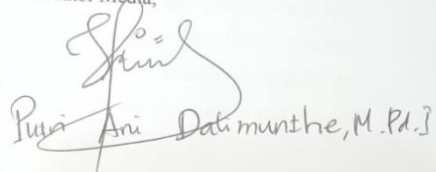 Media,
Putri Ani Dalimunthe, M.Pd.I